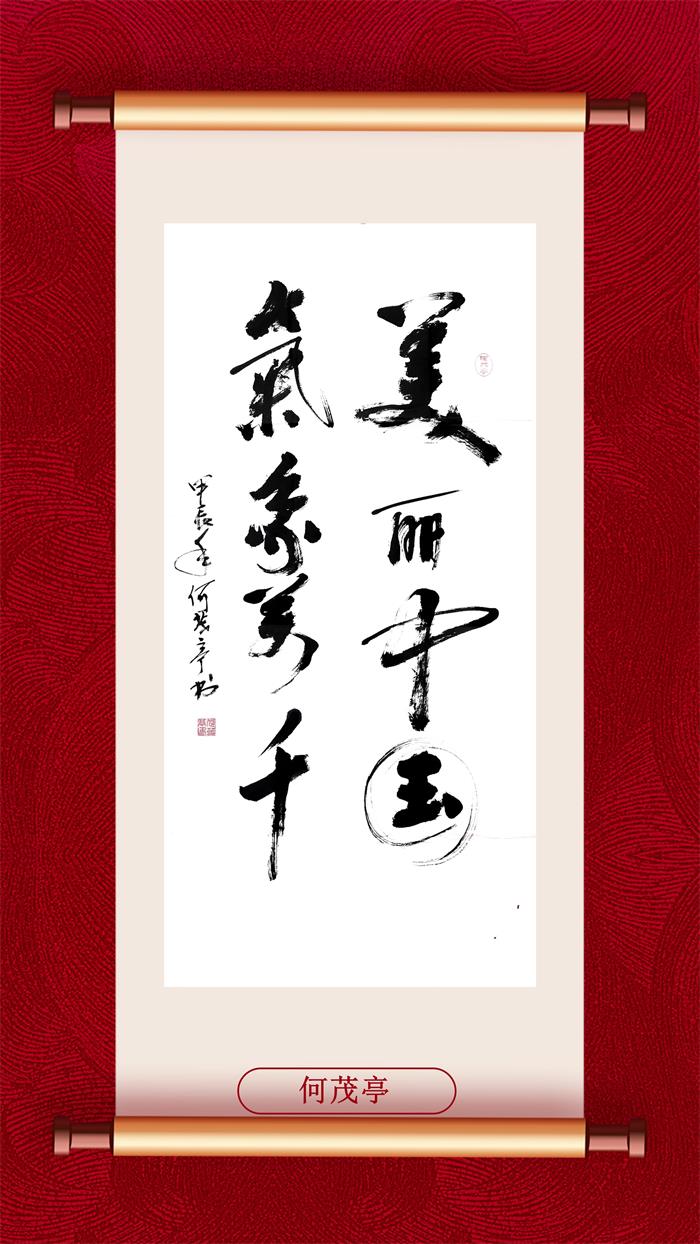 美丽中国
氣象万千
甲辰年何茂亭书
何茂亭